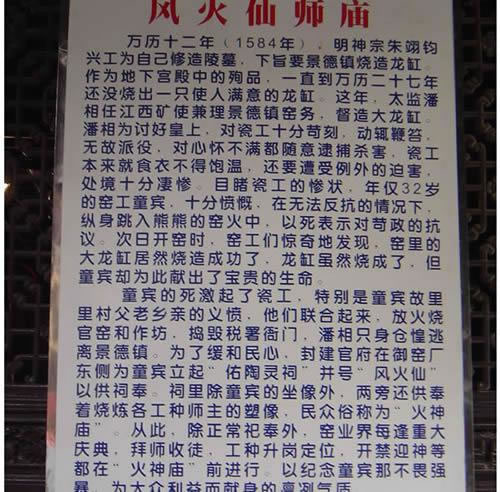 风火仙师庙
万历十二年（1584年），明神宗朱翊钧
兴工为自己修造陵墓，下旨要景德镇烧造龙缸。
作为地下宫殿中的殉品，一直到万历二十七年
还没烧出一只使人满意的龙缸。这年，太监潘
相任江西矿使兼理景德镇窑务，督造大龙缸。
潘相为讨好皇上，对瓷工十分苛刻，动辄鞭笞，
无故派役，对心怀不满都随意逮捕杀害，瓷工
本来就食衣不得饱温，还要遭受例外的迫害，
处境十分凄惨。目睹瓷工的惨状，年仅32岁
的窑工童宾，十分愤慨，在无法反抗的情况下，
纵身跳入熊熊的窑火中，以死表示对苛政的抗
议。次日开窑时，窑工们惊奇地发现，窑里的
大龙缸居然烧造成功了，龙缸虽然烧成了，但
童宾却为此献出了宝贵的生命。
童宾的死激起了瓷工，特别是童宾故里
里村父老乡亲的义愤，他们联合起来，放火烧
官窑和作坊，捣毁税署衙门，潘相只身仓惶逃
离景德镇。为了缓和民心，封建官府在御窑厂
东侧为童宾立起“佑陶灵祠”并号“风火仙”
以供祠奉。祠里除童宾的坐像外，两旁还供奉
着烧炼各工种师主的塑像，民众俗称为“火神
庙”。从此，除正常祀奉外，窑业界每逢重大
庆典，拜师收徒，工种升岗定位，开禁迎神等
都在“火神庙”前进行。以纪念童宾那不畏强
暴，为大众利益而献身的凛冽气质